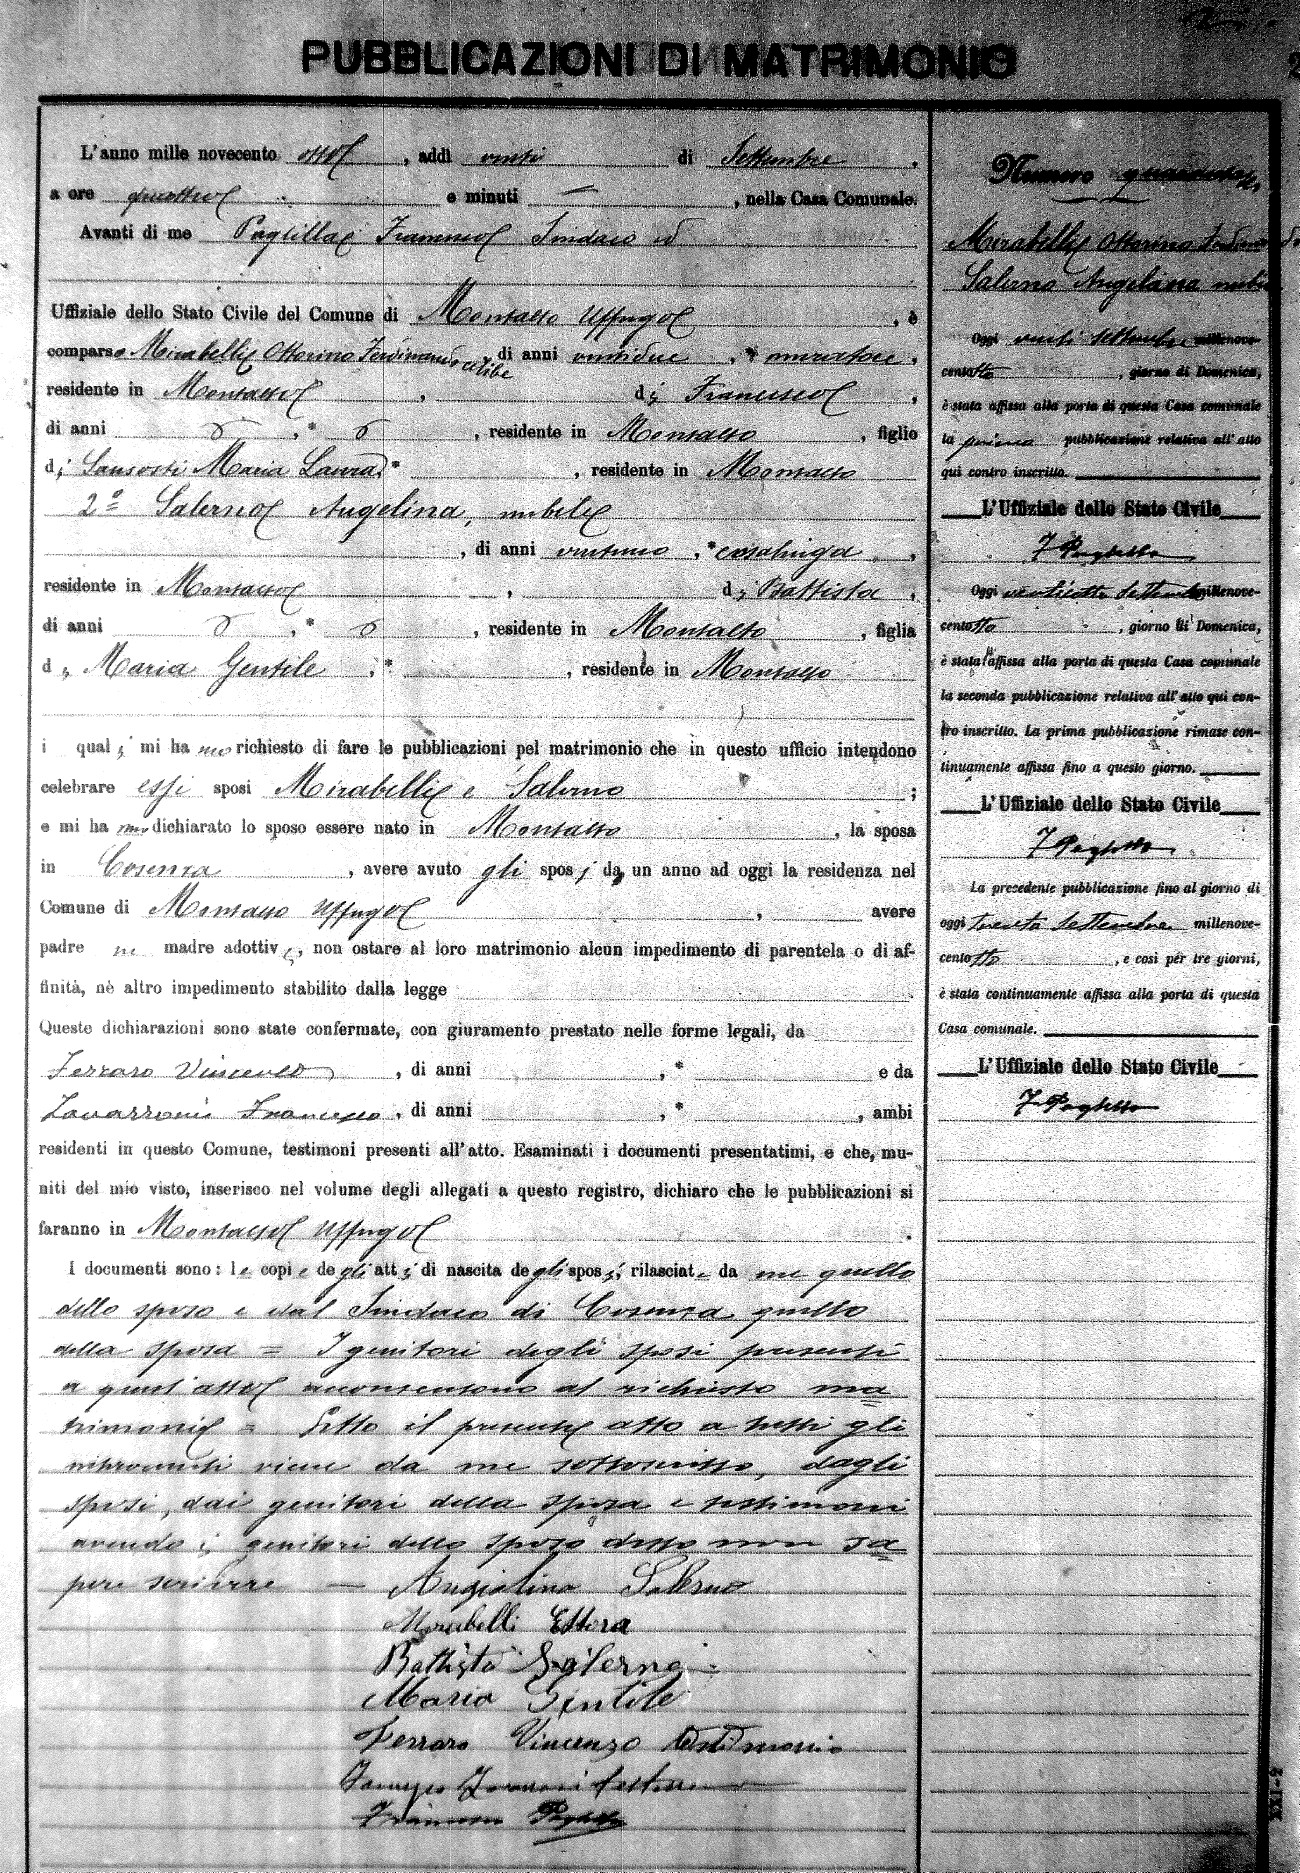 PUBBLICAZIONI DI MATRIMONIO
L'anno mille novecento otto, addì venti di Settembre,
a ore quattro e minuti —, nella Casa Comunale.
Avanti di me Francesco Sindaco ed
Uffiziale dello Stato Civile del Comune di Montalto Uffugo, è
compars Mirabelli Ottorino Ferdinando celibe, di anni ventidue, * muratore,
residente in Montalto, di Francesco,
di anni , * , residente in Montalto, figlio
di Sansosti Maria Laura, * , residente in Montalto
2° Salerno Angelina, nubile
, di anni ventuno, * casalinga,
residente in Montalto, di Battista,
di anni , * , residente in Montalto, figlia
di Maria Gentile, * , residente in Montalto
i quali mi hanno richiesto di fare le pubblicazioni pel matrimonio che in questo ufficio intendono
celebrare essi sposi Mirabelli e Salerno ;
e mi hanno dichiarato lo sposo essere nato in Montalto, la sposa
in Cosenza, avere avuto gli sposi da un anno ad oggi la residenza nel
Comune di Montalto Uffugo, avere
padre ne madre adottivi, non ostare al loro matrimonio alcun impedimento di parentela o di af-
finità, nè altro impedimento stabilito dalla legge
Queste dichiarazioni sono state confermate, con giuramento prestato nelle forme legali, da
Ferraro Vincenzo, di anni , * e da
Francesco, di anni , * , ambi
residenti in questo Comune, testimoni presenti all'atto. Esaminati i documenti presentatimi, e che, mu-
niti del mio visto, inserisco nel volume degli allegati a questo registro, dichiaro che le pubblicazioni si
faranno in Montalto Uffugo.
I documenti sono: le copie degli atti di nascita degli sposi, rilasciate da me quello
dello sposo e dal Sindaco di Cosenza quello
della sposa = I genitori degli sposi presenti
a quest'atto acconsentono al richiesto ma
trimonio = Letto il presente atto a tutti gli
intervenuti viene da me sottoscritto, dagli
sposi, dai genitori della sposa e testimoni
avendo i genitori dello sposo detto non sa
pere scrivere — Angiolina Salerno
Mirabelli
Battista Salerno
Maria Gentile
Ferraro Vincenzo testimonio
Francesco
Numero
Mirabelli Ottorino
Salerno Angelina nubile
Oggi venti Settembre millenove-
centotto, giorno di Domenica,
è stata affissa alla porta di questa Casa comunale
la prima pubblicazione relativa all'atto
qui contro inscritto.
L'Uffiziale dello Stato Civile
Oggi ventisette Settembre millenove-
centotto, giorno di Domenica,
è stata affissa alla porta di questa Casa comunale
la seconda pubblicazione relativa all'atto qui con-
tro inscritto. La prima pubblicazione rimase con-
tinuamente affissa fino a questo giorno.
L'Uffiziale dello Stato Civile
La precedente pubblicazione fino al giorno di
oggi trenta Settembre millenove-
centotto, e così per tre giorni,
è stata continuamente affissa alla porta di questa
Casa comunale.
L'Uffiziale dello Stato Civile